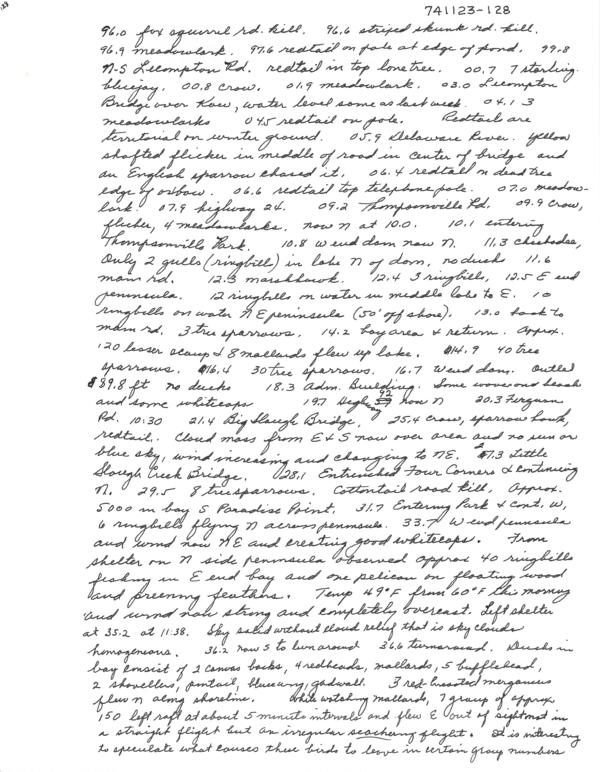 741123-128
96.0 fox squirrel rd. kill. 96.6 striped skunk rd. kill.
96.9 meadowlark. 97.6 redtail on pole at edge of pond. 99.8
N-S Lecompton Rd. redtail in top lone tree. 00.7 7 starling.
bluejay. 00.8 crow. 01.9 meadowlark. 03.0 Lecompton
Bridge over Kaw, water level same as last week. 04.1 3
meadowlarks 04.5 redtail on pole. Redtail are
territorial on winter ground. 05.9 Delaware River. Yellow
shafted flicker in middle of road in center of bridge and
an English sparrow chased it. 06.4 redtail n dead tree
edge of oxbow. 06.6 redtail top telephone pole. 07.0 meadow-
lark. 07.9 highway 24. 09.2 Thompsonville Rd. 09.9 crow,
flicker, 4 meadowlarks, now N at 10.0. 10.1 entering
Thompsonville Park. 10.8 W end dam now N. 11.3 chickadee,
Only 2 gulls (ringbill) in lake N of dam, no ducks 11.6
main rd. 12.3 marshhawk. 12.4 3 ringbills, 12.5 E end
peninsula. 12 ringbills on water in middle lake to E. 10
ringbills on water N E peninsula (50' off shore). 13.0 back to
main rd. 3 tree sparrows. 14.2 bay area & return. Approx.
120 lesser scaup & 8 mallards flew up lake. 14.9 40 tree
sparrows. 16.4 30 tree sparrows. 16.7 W end dam. Outlet
89.8 ft no ducks 18.3 Adm. Building. Some waves on beach
and some whitecaps 19.7 Highway 92 now N 20.3 Ferguson
Rd. 10:30 21.4 Big Slough Bridge, 25.4 crow, sparrow hawk,
redtail. Cloud mass from E & S now over area and no sun or
blue sky, wind increasing and changing to NE. 27.3 Little
Slough Creek Bridge. 28.1 Entrenched Four Corners & continuing
N. 29.5 8 tree sparrows. Cottontail road kill. Approx.
5000 in bay S Paradise Point. 31.7 Entering Park & cont. W,
6 ringbills flying N across peninsula. 33.7 W end peninsula
and wind now NE and creating good whitecaps. From
shelter on N side peninsula observed approx 40 ringbills
fishing in E end bay and one pelican on floating wood
and preening feathers. Temp 49°F from 60°F this morning
and wind now strong and completely overcast. Left shelter
at 35.2 at 11:38. Sky solid without cloud relief that is sky clouds
homogenious. 36.2 now S to turnaround 36.6 turnaround. Ducks in
bay consist of 2 canvas backs, 4 redheads, mallards, 5 bufflehead,
2 shovellers, pintail, bluewing, gadwall. 3 red-breasted mergansers
flew N along shoreline. While watching mallards, 7 group of approx
150 left raft at about 5 minute intervals and flew E out of sight not in
a straight flight but an irregular searching flight. It is interesting
to speculate what causes these birds to leave in certain group numbers